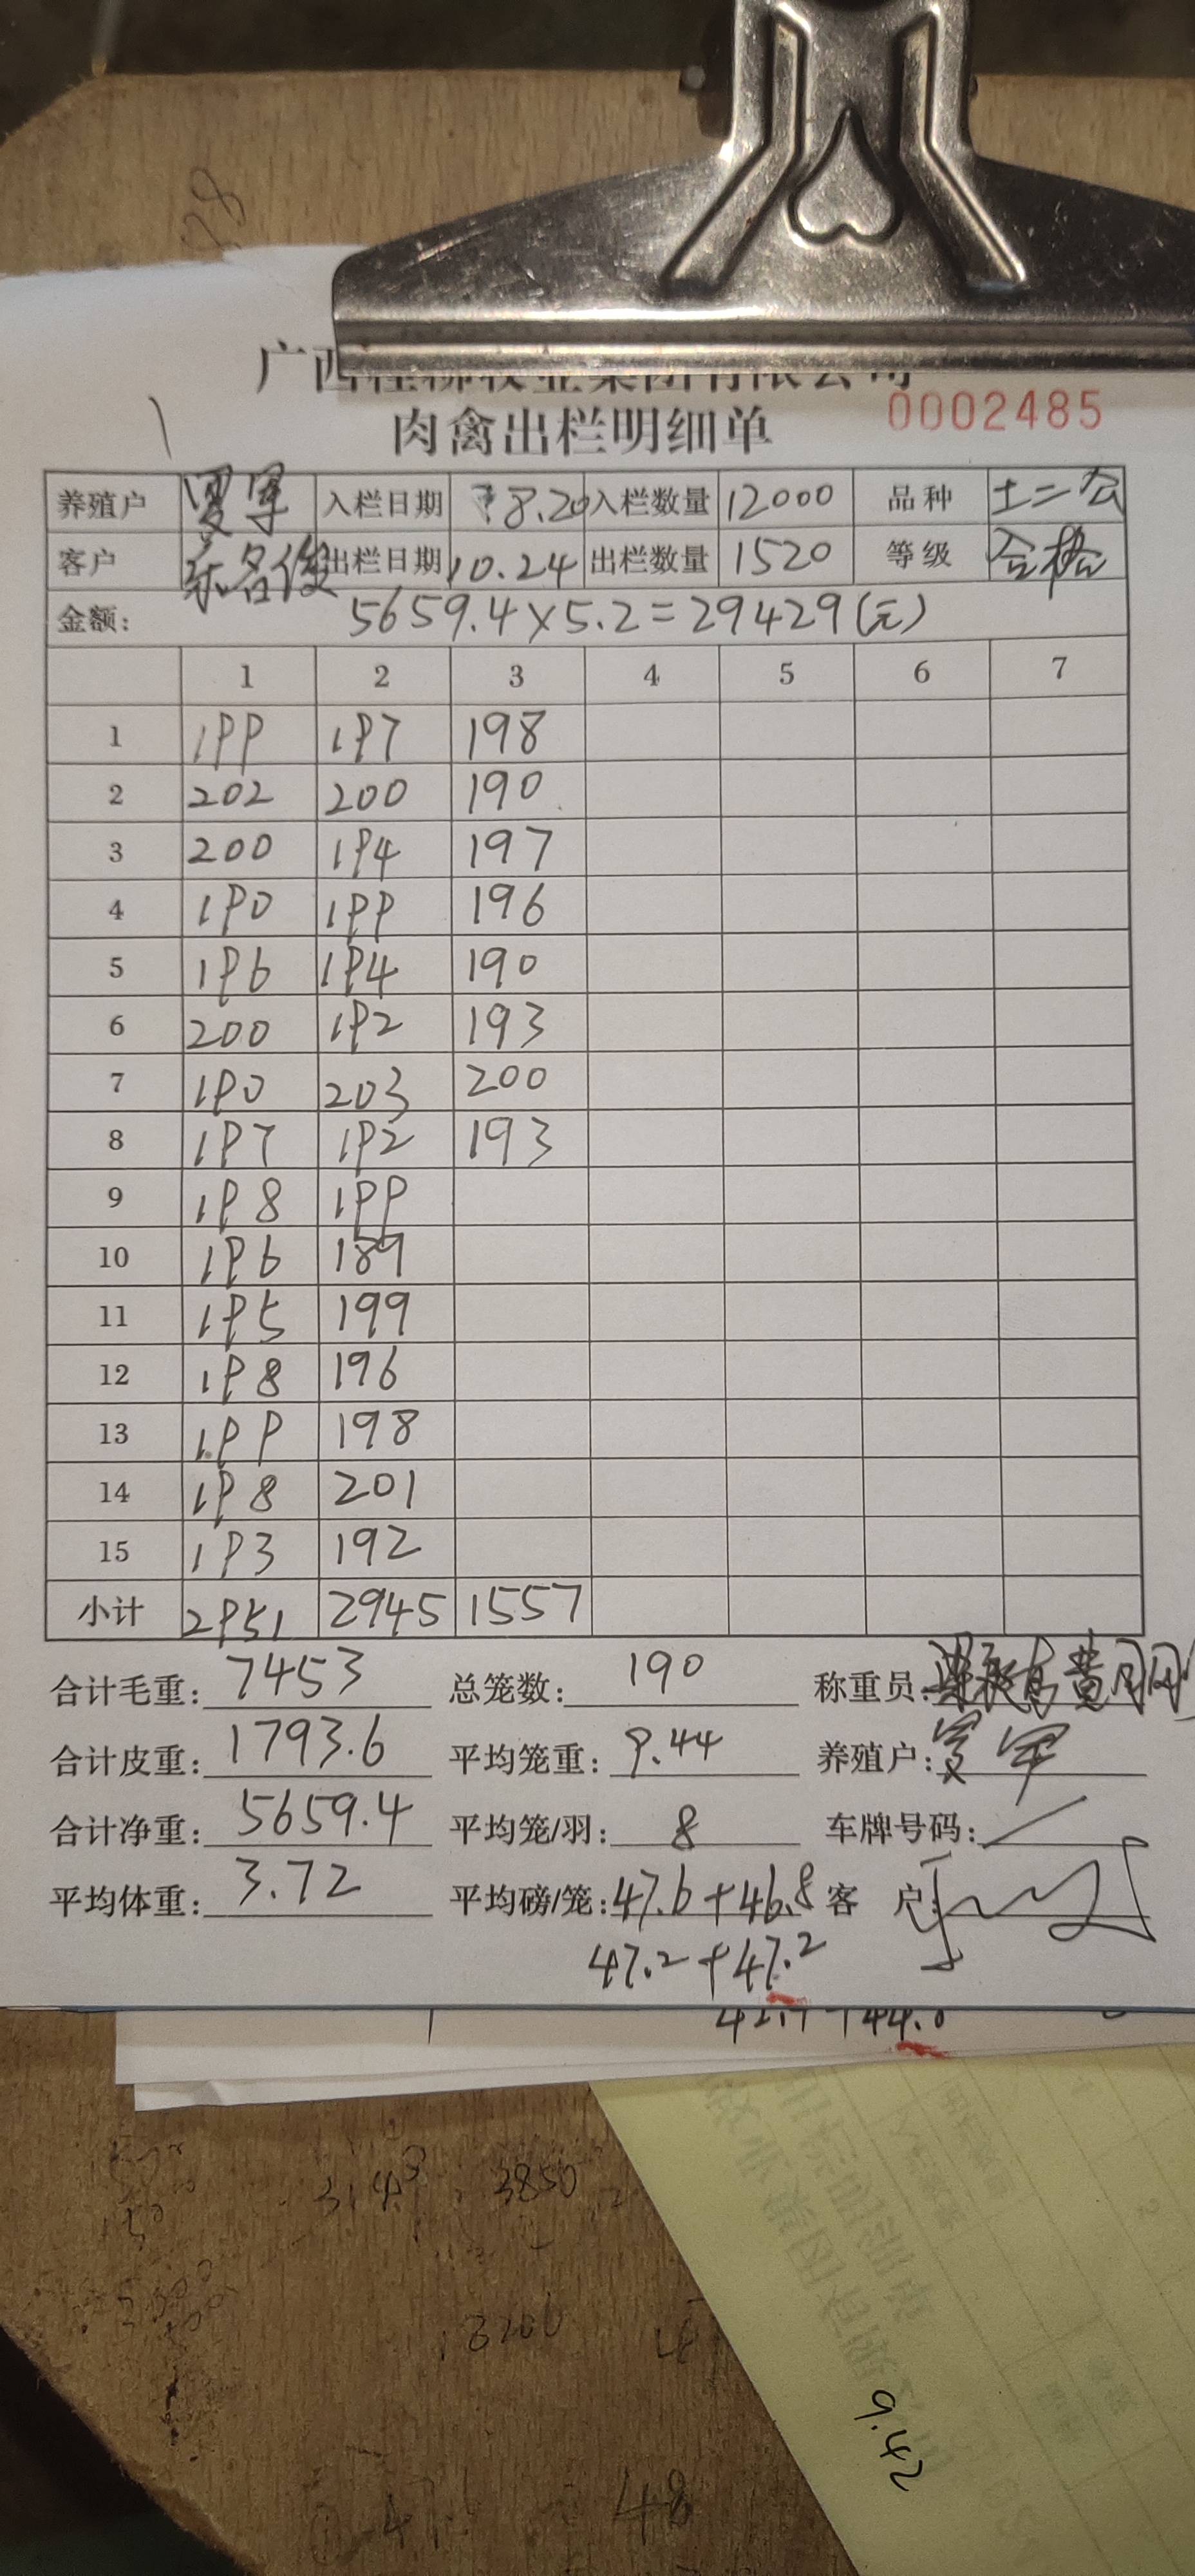 广西桂柳牧业集团有限公司
肉禽出栏明细单 0002485
养殖户 罗军 入栏日期 8.20 入栏数量 12000 品种 土二公
客户 名俊 出栏日期 10.24 出栏数量 1520 等级 合格
金额: 5659.4×5.2=29429(元)
1 2 3 4 5 6 7
1 199 197 198
2 202 200 190
3 200 194 197
4 190 199 196
5 196 194 190
6 200 192 193
7 190 203 200
8 197 192 193
9 198 199
10 196 189
11 195 199
12 198 196
13 199 198
14 198 201
15 193 192
小计 2951 2945 1557
合计毛重: 7453 总笼数: 190 称重员:
合计皮重: 1793.6 平均笼重: 9.44 养殖户: 罗军
合计净重: 5659.4 平均笼/羽: 8 车牌号码: /
平均体重: 3.72 平均磅/笼: 47.6+46.8 客 户:
47.2+47.2
3850
3206
9.42
48